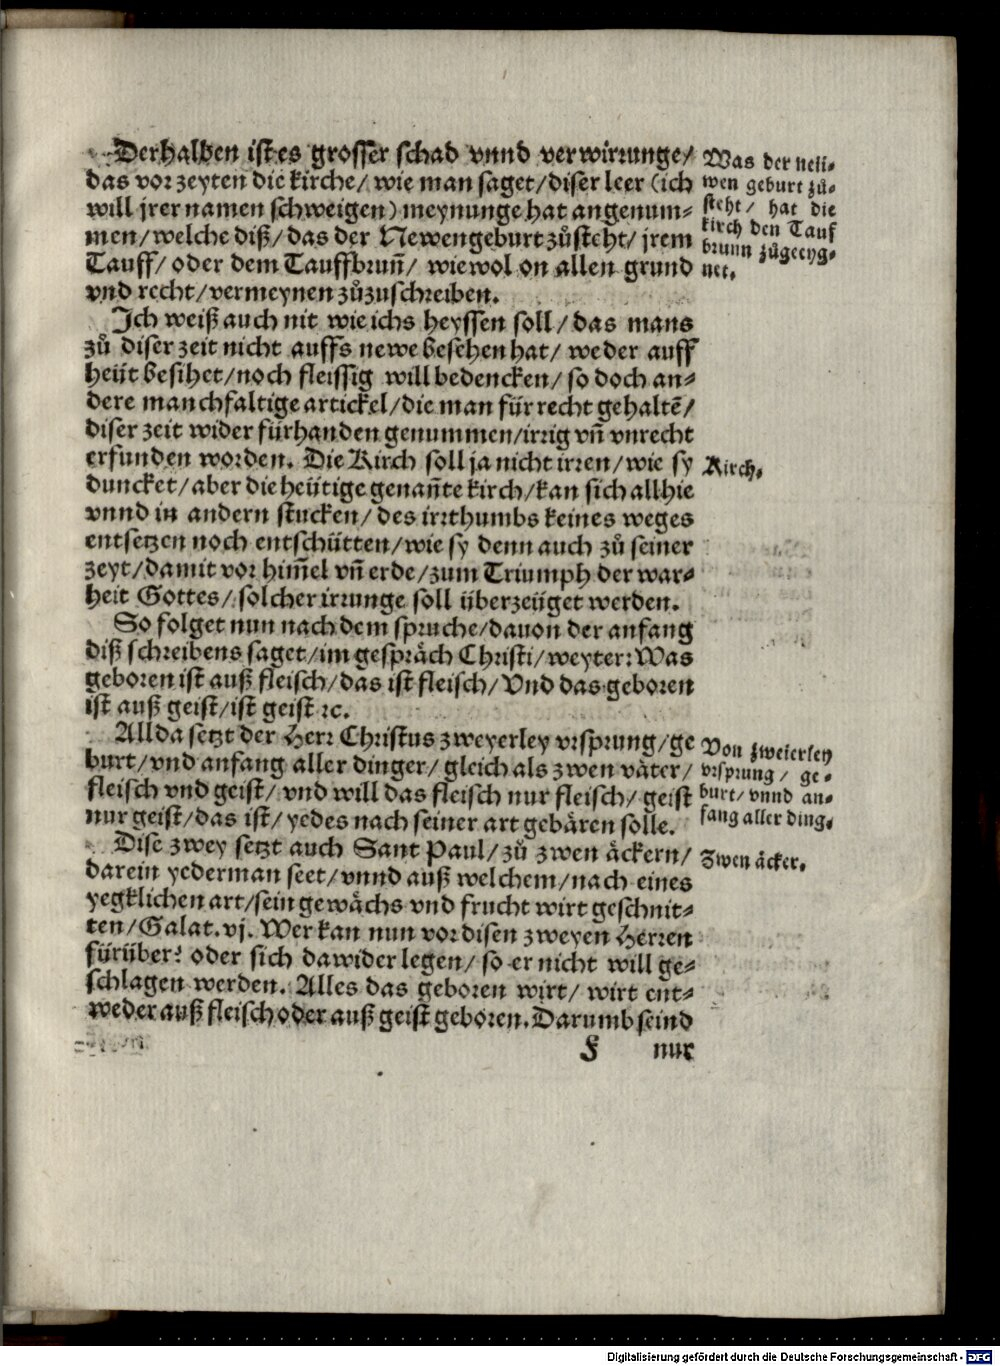 Derhalben ist es grosser schad vnnd verwirrunge/
das vor zeyten die kirche/ wie man saget/ diser leer (ich
will jrer namen schweigen) meynunge hat angenum⸗
men/ welche diß/ das der Newengeburt zůsteht/ jrem
Tauff/ oder dem Tauffbruñ/ wiewol on allen grund
vnd recht/ vermeynen zůzuschreiben.
Was der neü⸗
wen geburt zů⸗
steht/ hat die
kirch den Tauf
brunn zůgeeyg⸗
net.
Ich weiß auch nit wie ichs heyssen soll/ das mans
zů diser zeit nicht auffs newe besehen hat/ weder auff
heüt besihet/ noch fleissig will bedencken/ so doch an⸗
dere manchfaltige artickel/ die man für recht gehaltē/
diser zeit wider fürhanden genummen/ irrig vñ vnrecht
erfunden worden. Die Kirch soll ja nicht irren/ wie sy
duncket/ aber die heütige genañte kirch/ kan sich allhie
vnnd in andern stucken/ des irrthumbs keines weges
entsetzen noch entschütten/ wie sy denn auch zů seiner
zeyt/ damit vor him̃el vñ erde/ zum Triumph der war⸗
heit Gottes/ solcher irrunge soll überzeüget werden.
Kirch.
So folget nun nach dem spruche/ dauon der anfang
diß schreibens saget/ im gespräch Christi/ weyter: Was
geboren ist auß fleisch/ das ist fleisch/ Vnd das geboren
ist auß geist/ ist geist ꝛc.
Allda setzt der Herr Christus zweyerley vrsprung/ ge
burt/ vnd anfang aller dinger/ gleich als zwen väter/
fleisch vnd geist/ vnd will das fleisch nur fleisch/ geist
nur geist/ das ist/ yedes nach seiner art gebären solle.
Von zweierley
vrsprung/ ge⸗
burt/ vnnd an⸗
fang aller ding.
Dise zwey setzt auch Sant Paul/ zů zwen äckern/
darein yederman seet/ vnnd auß welchem/ nach eines
yegklichen art/ sein gewächs vnd frucht wirt geschnit⸗
ten/ Galat. vj. Wer kan nun vor disen zweyen Herren
fürüber? oder sich dawider legen/ so er nicht will ge⸗
schlagen werden. Alles das geboren wirt/ wirt ent⸗
weder auß fleisch oder auß geist geboren. Darumb seind
Zwen äcker.
F nur
Digitalisierung gefördert durch die Deutsche Forschungsgemeinschaft - DFG